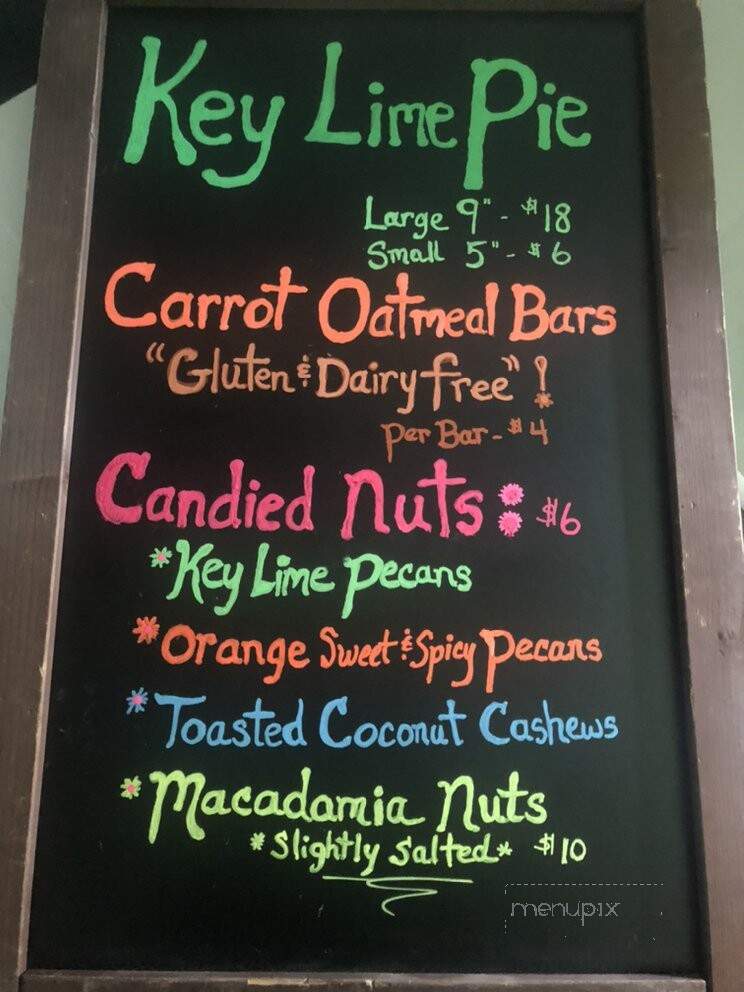 Key Lime Pie
Large 9" - $18
Small 5" - $6
Carrot Oatmeal Bars
"Gluten & Dairy free" !
per Bar - $4
Candied Nuts: $6
*Key Lime Pecans
*Orange Sweet & Spicy Pecans
*Toasted Coconut Cashews
*Macadamia Nuts
*Slightly Salted* $10
menupix